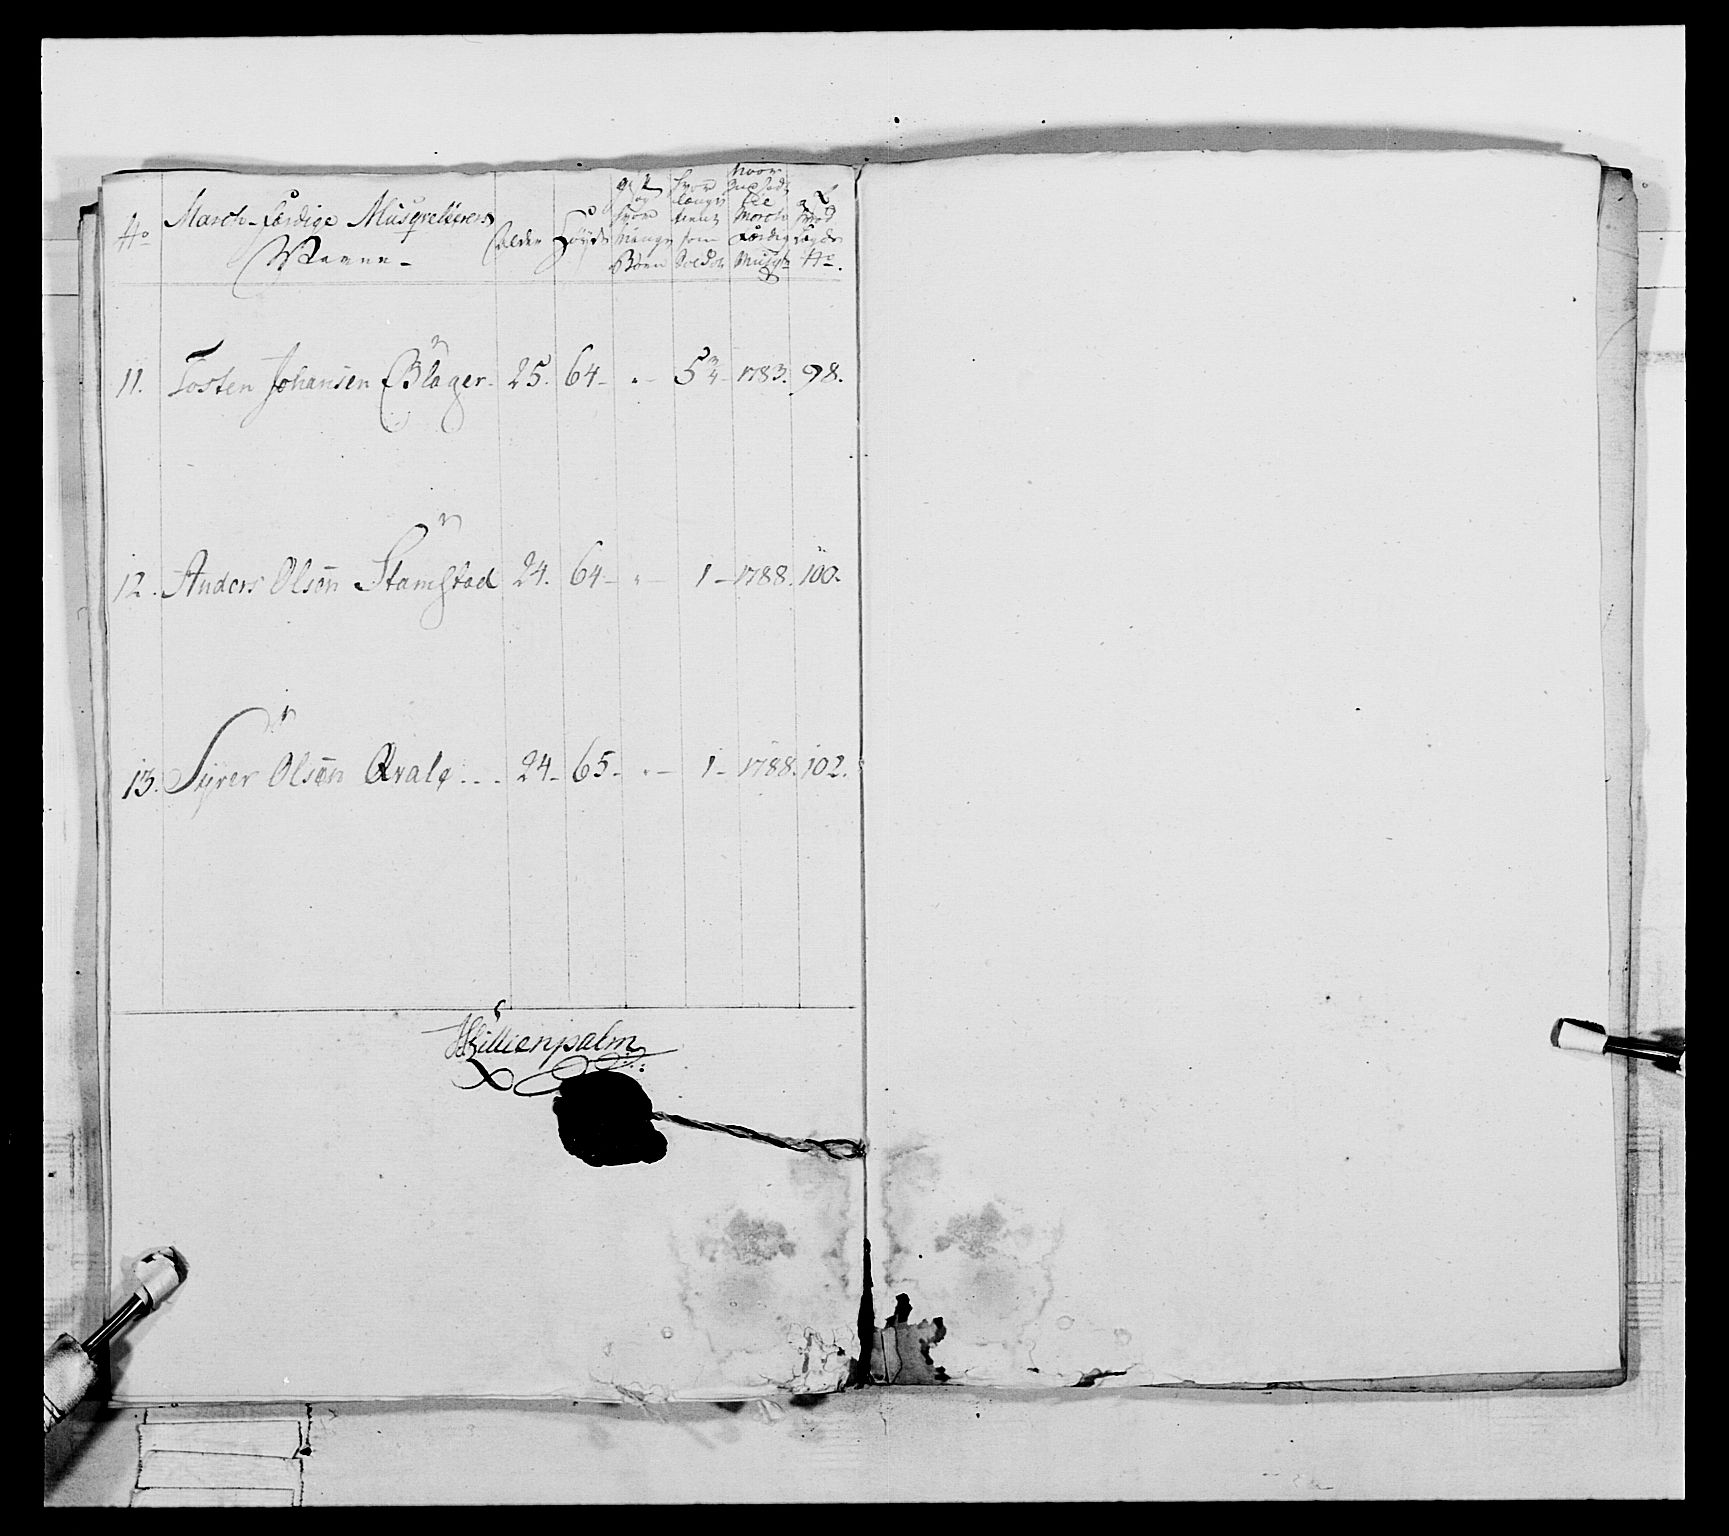 No March-Færdige Musqveterers Navne - Alder Høyde gift og hvor mange Børn hvor længe tient som Soldat March Færdig Musqr Lægds No.
11. Tosten Johansen Blager - 25. 64 - " - 5 3/4 - 1783. 98.
12. Anders Olsøn Stamstad 24. 64 - " - 1 - 1788. 100.
13. Syver Olsøn Qvale - - - 24 - 65 - " - 1 - 1788. 102.
Lillienpalm